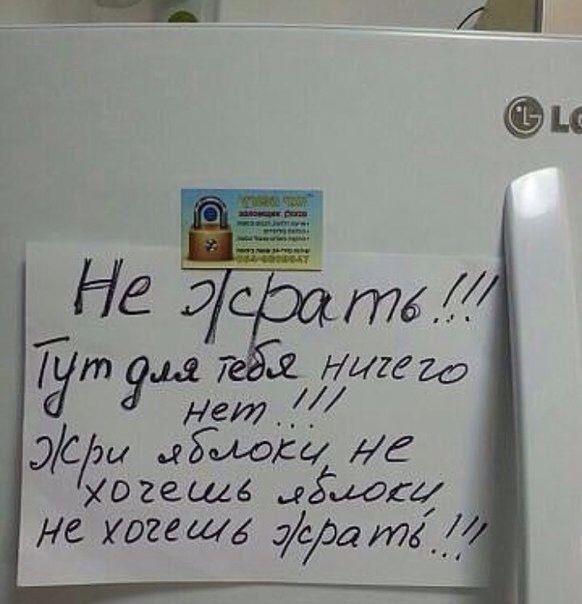 LG
взломщик замков
Не жрать!!!
Тут для тебя ничего
нет!!!
Жри яблоки, не
хочешь яблоки,
не хочешь жрать!!!